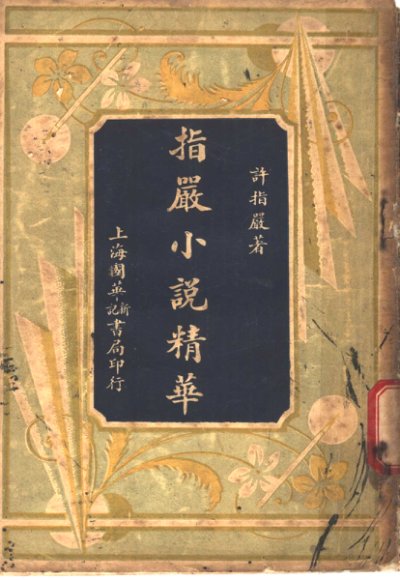 許指嚴著
指嚴小説精華
上海國英新記書局印行